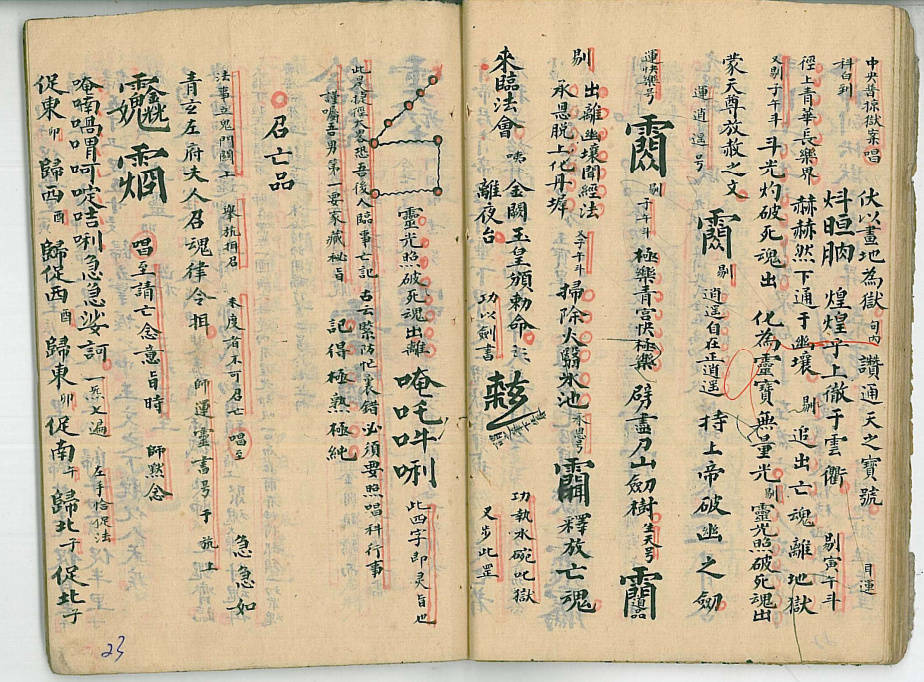 中央普掠獄案唱
科白到
伏以畫地為獄 旬內 讚通天之寶號 目運
煌煌乎上徹于雲衢 剔寅午斗
徑上青華長樂界 赫赫然下通于幽壤 剔 追出亡魂離地獄
又剔子午斗 斗光灼破死魂出 化為靈寶無量光 剔 靈光照破死魂出
蒙天尊放赦之文
運逍遥号 剔 逍遥自在正逍遥 持上帝破幽之劒
運快樂号 剔子午斗 極樂青宮快極樂 劈盡刀山劒樹
剔 出離幽壤聞經法 又子午斗 掃除火翳氷池
承恩脱上化丹墀 釋放亡魂
來臨法會 金闕玉皇頒勅命 功執水碗叱獄
離夜台 功以劍書 又步此罡
靈光照破死魂出離 唵吒吽唎 此四字即灵旨也
此是捷徑大畧恐吾後人臨事亡記 古云緊防忙裏錯 必須要照唱科行事
謹囑吾男第一要家藏秘旨 記得極熟極純
召亡品
法事立鬼門關上 舉抗捐召 未度者不可召亡 唱至 急急如
青玄左府夫人召魂律令揖 師運靈書号于旐上
唱至請亡念意旨時 師黙念
唵喃喎喟呵啶咭唎急急娑訶 一炁七遍 左手恰促法
促東卯歸西酉歸促西酉歸東卯促南午歸北子促北子
23